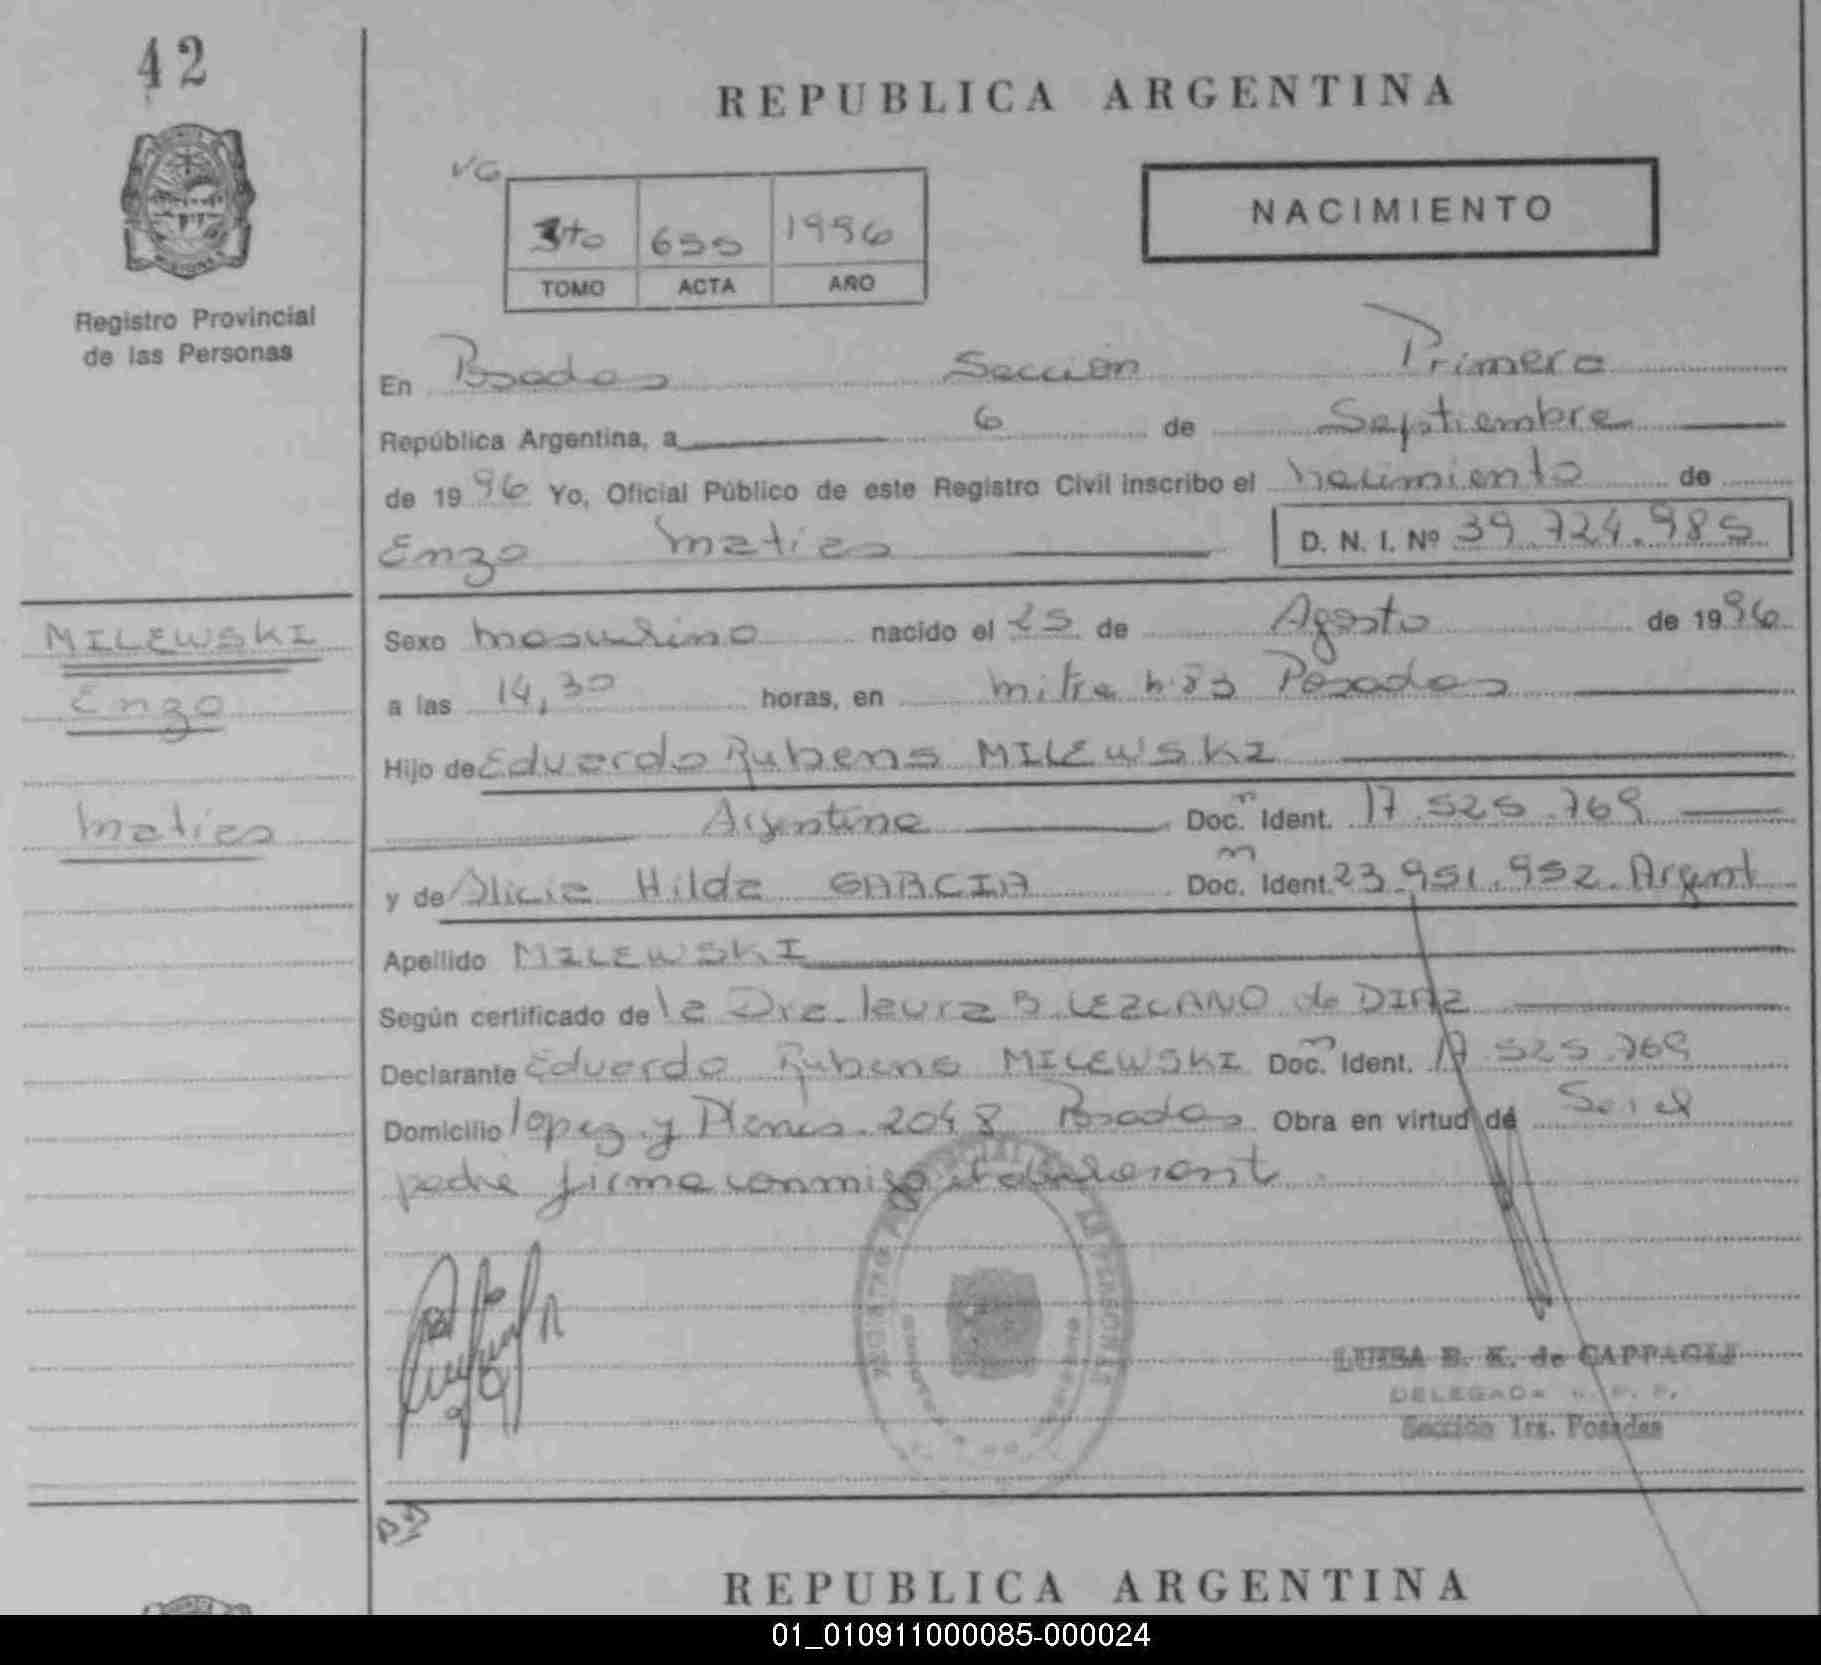 42
REPUBLICA ARGENTINA
VG
3to 655 1996
TOMO ACTA AÑO
NACIMIENTO
Registro Provincial
de las Personas
En Posadas Sección Primera
República Argentina, a 6 de Septiembre
de 1996 Yo, Oficial Público de este Registro Civil inscribo el nacimiento de
Enzo Matias D. N. I. Nº 39.724.985
MILEWSKI
Enzo
Matias
Sexo Masculino nacido el 25 de Agosto de 1996
a las 14,30 horas, en Mitre Posadas
Hijo de Eduardo Rubens MILEWSKI
Argentina Doc. Ident. 17.525.769
y de Alicia Hilda GARCIA Doc. Ident. 23.951.952. Argent
Apellido MILEWSKI
Según certificado de la Dra. laura B LEZCANO de DIAZ
Declarante Eduardo Rubens MILEWSKI Doc. Ident. 17.525.769
Domicilio lopez y Planes 2048 Posadas Obra en virtud de Ser el
padre firma conmigo
LUISA B. K. de CAPPAGLI
DELEGADA R. P. P.
Sección 1ra. Posadas
REPUBLICA ARGENTINA
01_010911000085-000024